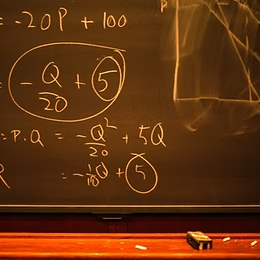 = -20P + 100
= -Q/20 + 5
= P.Q = -Q²/20 + 5Q
R = -1/10 Q + 5